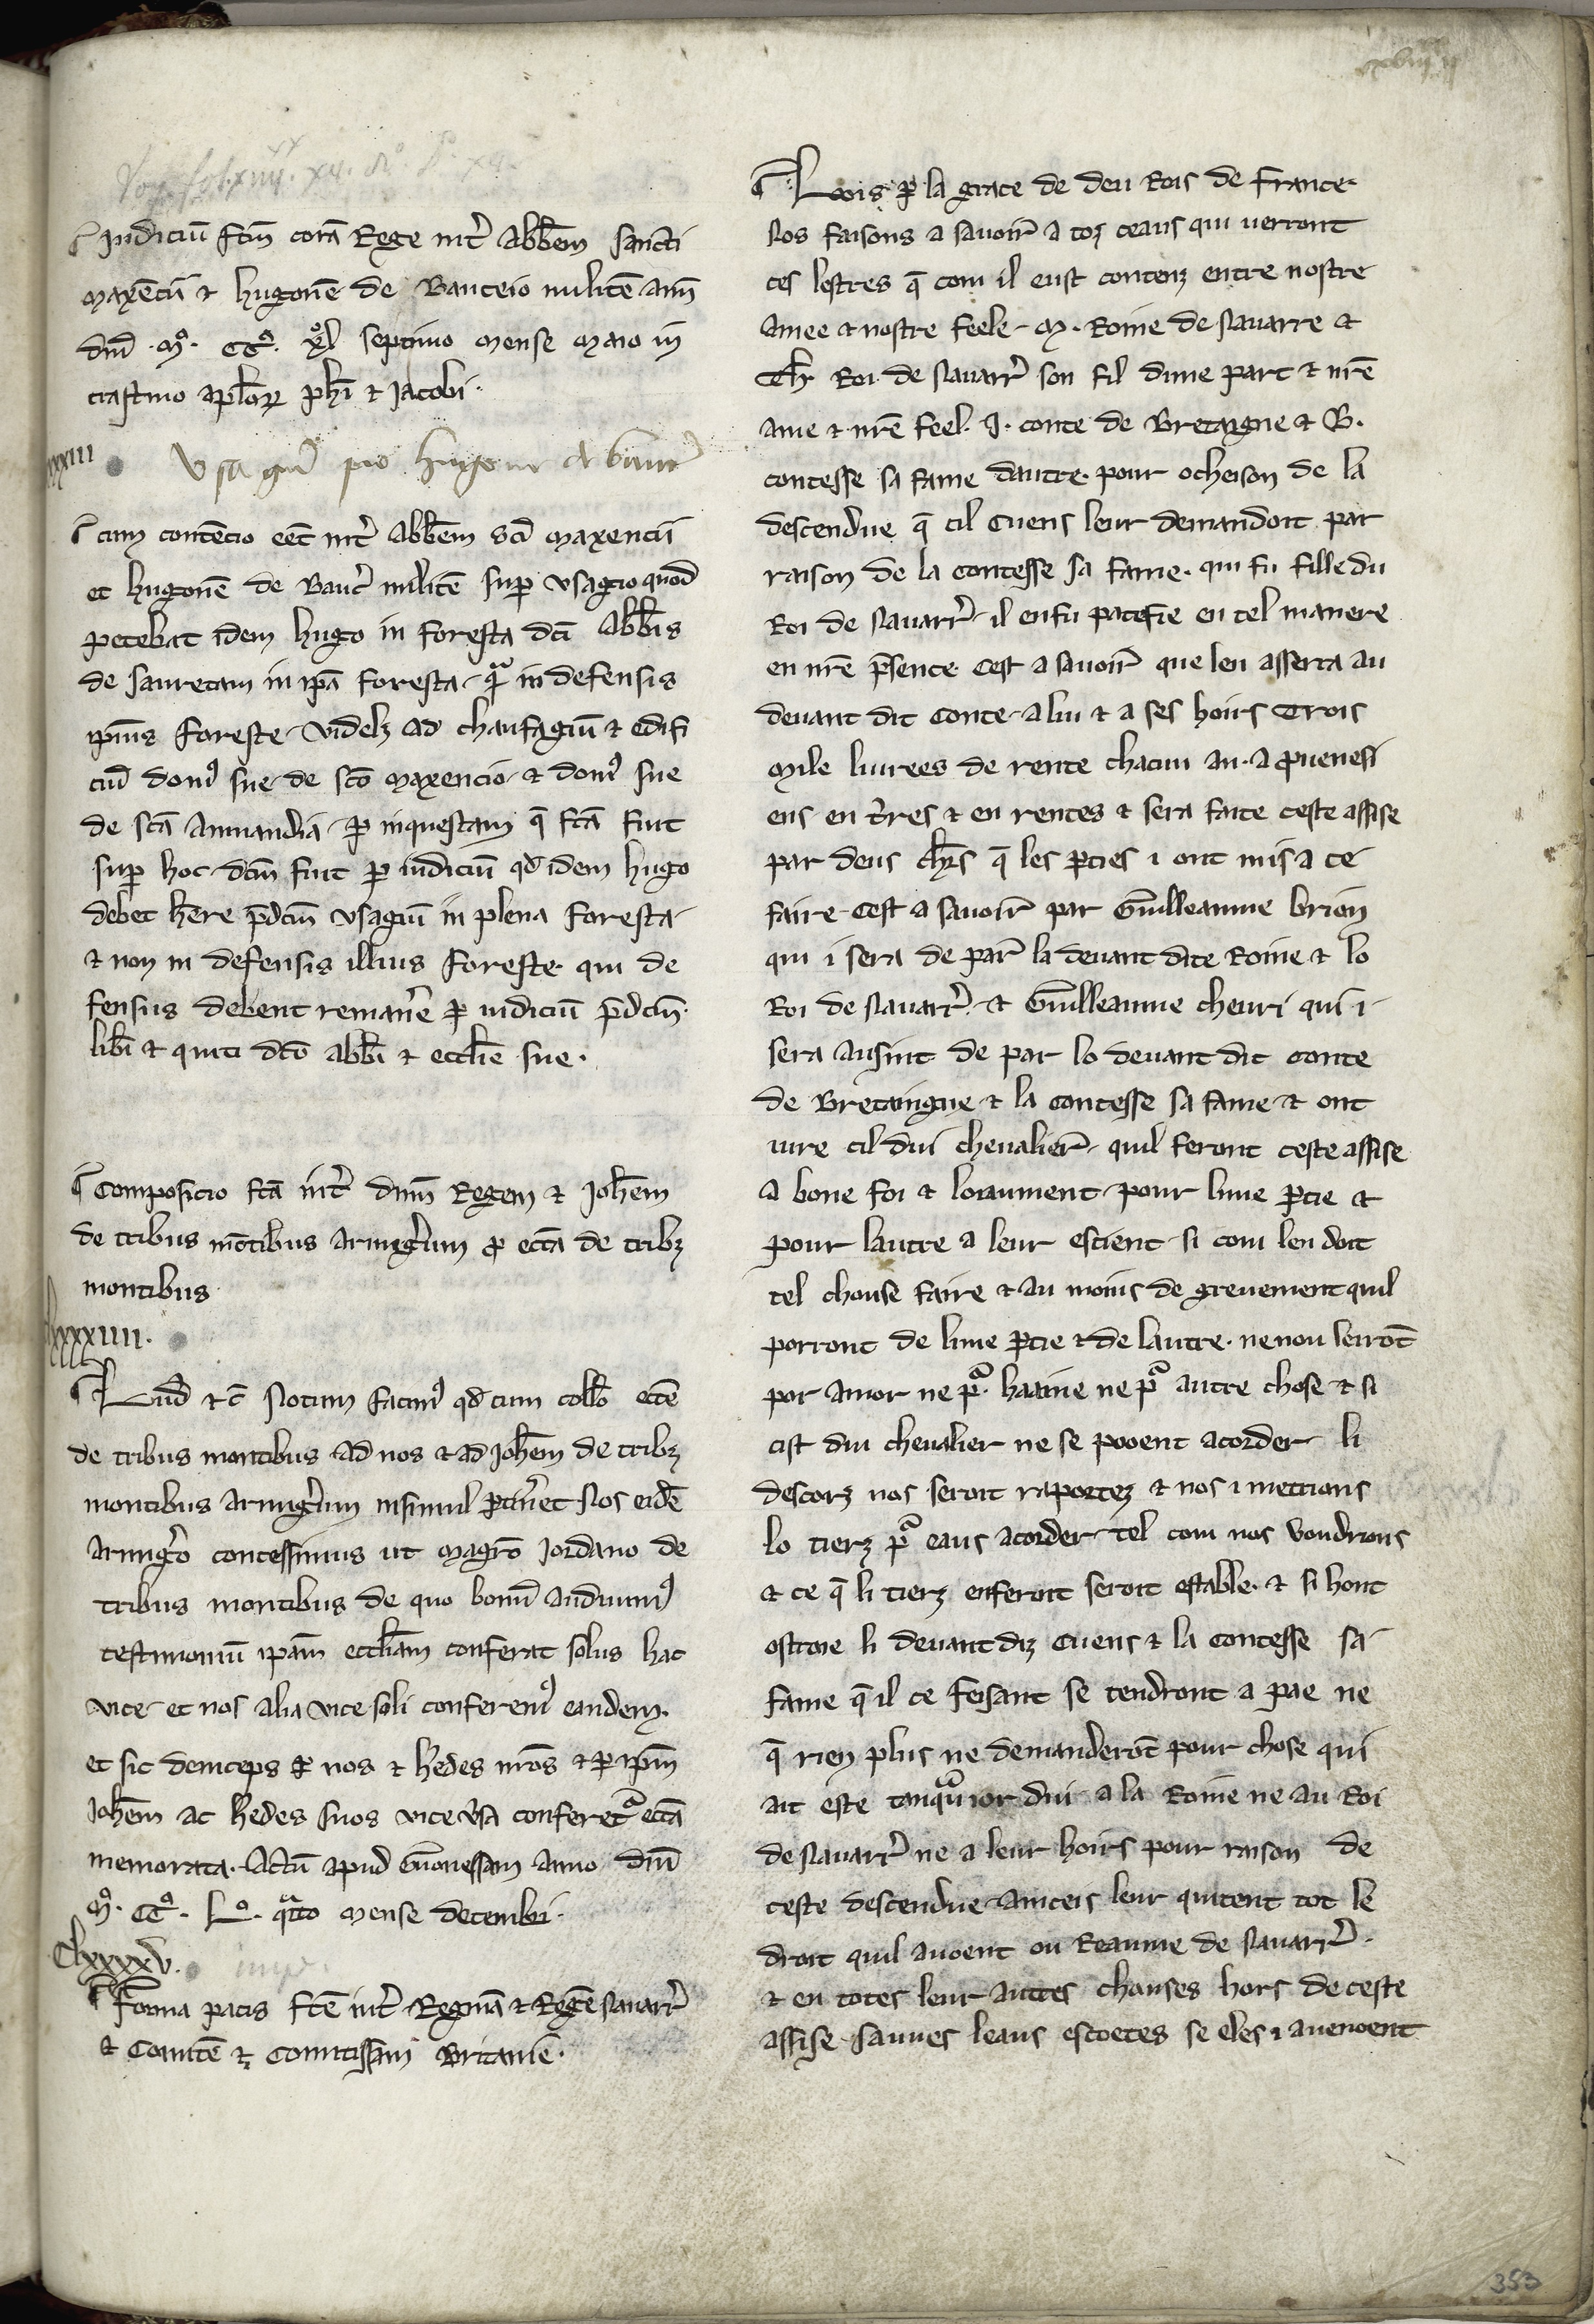 ¶ Judiciū fcm̄ corā Rege int̾ Abb̄em sancti
maxēcii ⁊ hugonē de Bauceio militē Anno
dn̄i .mº. ccº. xlº septimo mense maio in
crastino aplōrꝝ phī ⁊ Jacobi.
xxxiii
Vsagiū pro hugone de bauc̾
¶ cum contēcio eēt int̾ Abb̄em sc̄i maxencii
et hugonē de Bauc̾ militē sup vsagio quod
petebat idem hugo in foresta dc̄i Abb̄is
de sauretam in ip̄a foresta qͣ in defensis
ip̄ius foreste videlz ad chaufagiū ⁊ edifi
ciū domꝰ sue de sc̄o maxencio ⁊ domꝰ sue
de sc̄a Amandia ꝑ inquestam q̄ fc̄a fuit
sup hoc dc̄m fuit ꝑ iudiciū qd̄ idem hugo
debet hēre p̄dcm̄ vsagiū in plena foresta
⁊ non in defensis illius foreste qui de
fensus debent remanē̄ ꝑ iudiciū p̄dcm̄
lib̄i ⁊ quiti dc̄o abb̄i ⁊ ecclīe sue.
¶ Composicio fc̄a int̾ dnm̄ Regem ⁊ Joh̄em
de tribus mōtibus Armig̾um ꝓ ecc̄a de tribꝫ
montibus
lxxxxiiii.
¶ Lud̄ ⁊c̄ Notum facimꝰ qd̄ cum collō ecc̄e
de tribus montibus ad nos ⁊ ad Joh̄em de tribꝫ
montibus armig̾um insimul ꝑtin̾et Nos eidē
Armig̾o concessimus ut mag̅ro Jordano de
tribus montibus de quo bonū audiuimꝰ
testimoniū ip̄am eccl̄iam conferat solus hac
vice et nos alia vice soli conferemꝰ eandem.
et sic deinceps ꝑ nos ⁊ h̄edes nr̄os ⁊ ꝑ ip̄m
Joh̄em ac h̄edes suos vice v̾sa conferet̾ ecc̄a
memorata. Actū apud Gōnessam anno dn̄i
mº. ccº. Lº. qͣrto mense decembri.
Clxxxxv.
¶ Forma pacis fc̄e int̾ Reginā ⁊ Regē Nauarr̾
⁊ Comitē ⁊ Comitissam Britānie.
¶ Loois ꝑ la grace de deu Rois de France
Nos faisons a sauoir a toz ceaus qui uerront
ces lestres q̄ com il eust contenz entre nostre
Amee ⁊ nostre feele .M. Roine de Nauarre ⁊
Th̄. Roi de Nauarr̾ son fil dune part ⁊ nr̄e
ame ⁊ nr̄e feel .J. conte de Bretaigne ⁊ B.
contesse sa fame dautre. pour ocheison de la
descendue q̄ cil Cuens leur demandoit par
raison de la contesse sa fame. qui fu fille du
Roi de Nauarr̾. il en fu patefie en tel manere
en nr̄e p̄sence. Cest a sauoir que len asserra au
deuant dit Conte a lui ⁊ a ses hoirs Trois
mile liurees de rente chacun an. a ꝓuenesi
ens en t̾res ⁊ en rentes ⁊ sera faite ceste assise
par deus ch̄rs q̄ les ꝑties i ont mis a ce
faire. Cest a sauoir par Guilleaume brion
qui i sera de par la deuant dite Roine ⁊ lo
Roi de Nauarr̾. ⁊ Guilleaume cheuri qui i
sera Ausint de par lo deuant dit conte
de Bretaingne ⁊ la contesse sa fame ⁊ ont
iure cil dui cheualier. quil feront ceste assise
a bone foi ⁊ loiaument pour lune ꝑtie ⁊
pour lautre a leur escient si com len doit
tel chouse faire ⁊ au moins de greuement quil
porront de lune ꝑtie ⁊ de lautre. ne nou leirōt
por amor ne pͣ. haaine ne pͣ autre chose ⁊ si
cist dui cheualier ne se pooent acorder li
descorz nos seroit raportez ⁊ nos i mettrians
lo tierz pͣ eaus acorder tel com nos voudrons
⁊ ce q̄ li tierz enferoit seroit estable. ⁊ si hont
ostroie li deuant diz Cuens ⁊ la contesse sa
fame q̄ il ce feisant se tendront a pae ne
q̄ rien plus ne demanderōt pour chose qui
ait este tanquior dui a la Roine ne au Roi
de Nauarr̾ ne a leur hoirs pour raison de
ceste descendue Ainceis leur quitent tot le
droit quil auoent ou Reaume de Nauarr̾.
⁊ en totes leur autres chauses hors de ceste
assise. sauues leaus escoetes se eles i auenoent
353